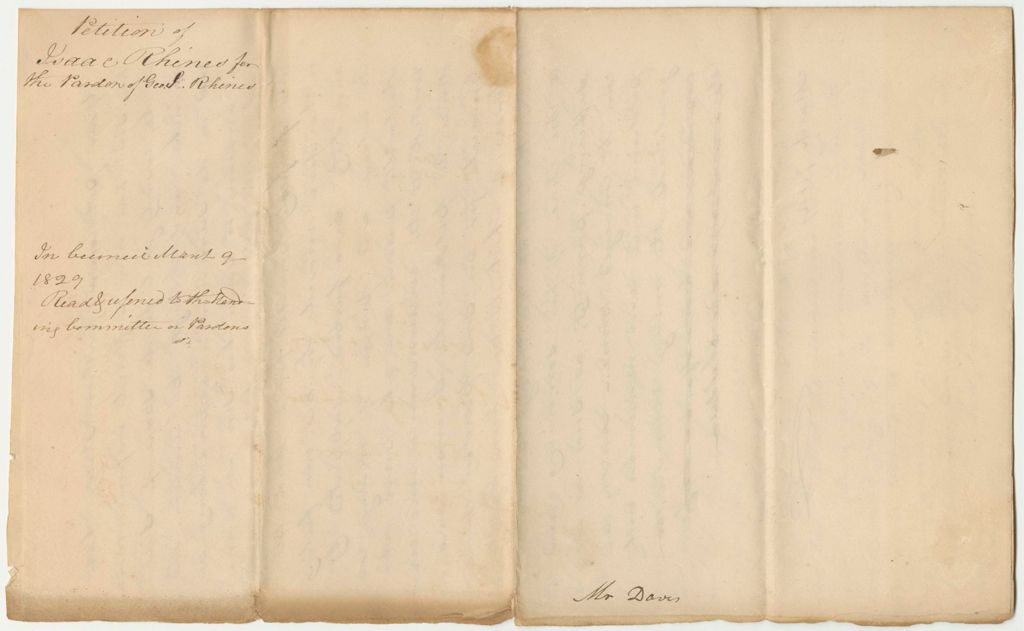 Petition of
Isaac Rhines for
the Pardon of Geo. S. Rhines
In Council March 9
1829
Read & referred to the Stand-
ing Committee on Pardons
Mr Davis